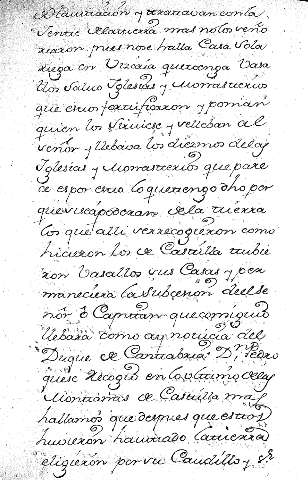 la havitación y tratavan con la
Gente de la tierra mas no los seño
rearon, pues no se halla Casa Sola
riega en Vizcaia que tenga Vasa
llos salvo Iglesias y Monasterios
que estos fortificaron y ponian
quien los sirviese y llebban al
señor y llebava los diezmos de las
Iglesias y Monasterios que pare
ce es por esto lo que tengo dho por
que si se apoderaran de la tierra
los que alli se recogieron como
hicieron los de Castilla tubie
ron Vasallos sus Casas y per
maneciera la subcesion de el se
ñor ó Capitan que consigo
llebara como ay noticia del
Duque de Cantabria Dn Pedro
que se recogió en lo ultimo de las
Montañas de Castilla mas
hallamos que despues que estos
huvieron havitado la tierra
eligieron por su Caudillo y